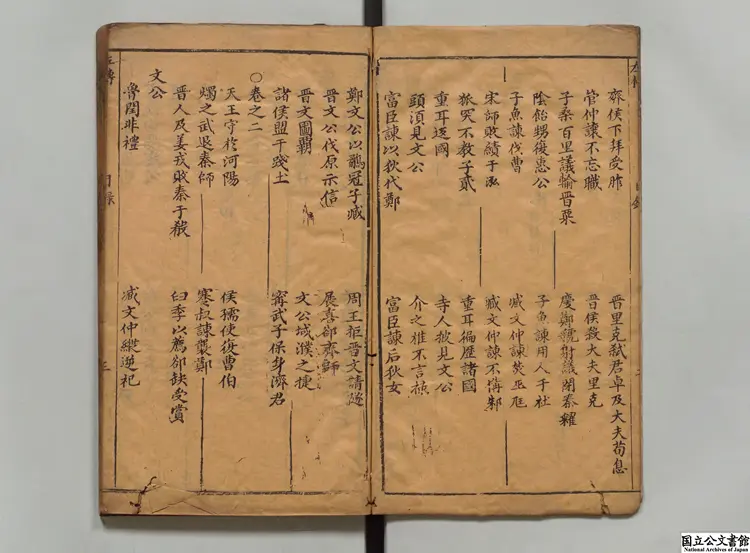 齊侯下拜受胙 晋里克弑君卓及大夫荀息
管仲讓不忘職 晋侯殺大夫里克
子桑百里議輸晋粟 慶鄭虢射議閉秦糴
陰飴甥復惠公 子魚諫用人于社
子魚諫伐曹 臧文仲諫焚巫尫
宋師敗績于泓 臧文仲諫不備邾
狐突不教子貳 重耳徧歴諸國
重耳返國 寺人披見文公
頭湏見文公 介之推不言祿
富臣諫以狄伐鄭 富臣諫后狄女
鄭文公以鷸冠子臧 周王拒晋文請隧
晋文公伐原示信 展喜却齊師
晋文圖覇 文公城濮之捷
諸侯盟于踐土 甯武子保身濟君
○卷之二
天王守於河陽 侯獳使復曹伯
燭之武退秦師 蹇叔諫襲鄭
晋人及姜戎敗秦于殽 臼季以薦郤缺受賞
文公
魯閏非禮 臧文仲縱逆祀
左傳 目録 三
国立公文書館
National Archives of Japan